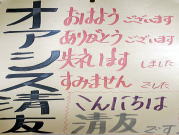 オアシス清友
おはようございます
ありがとうございます
失礼します しました
すみません でした
こんにちは
清友です